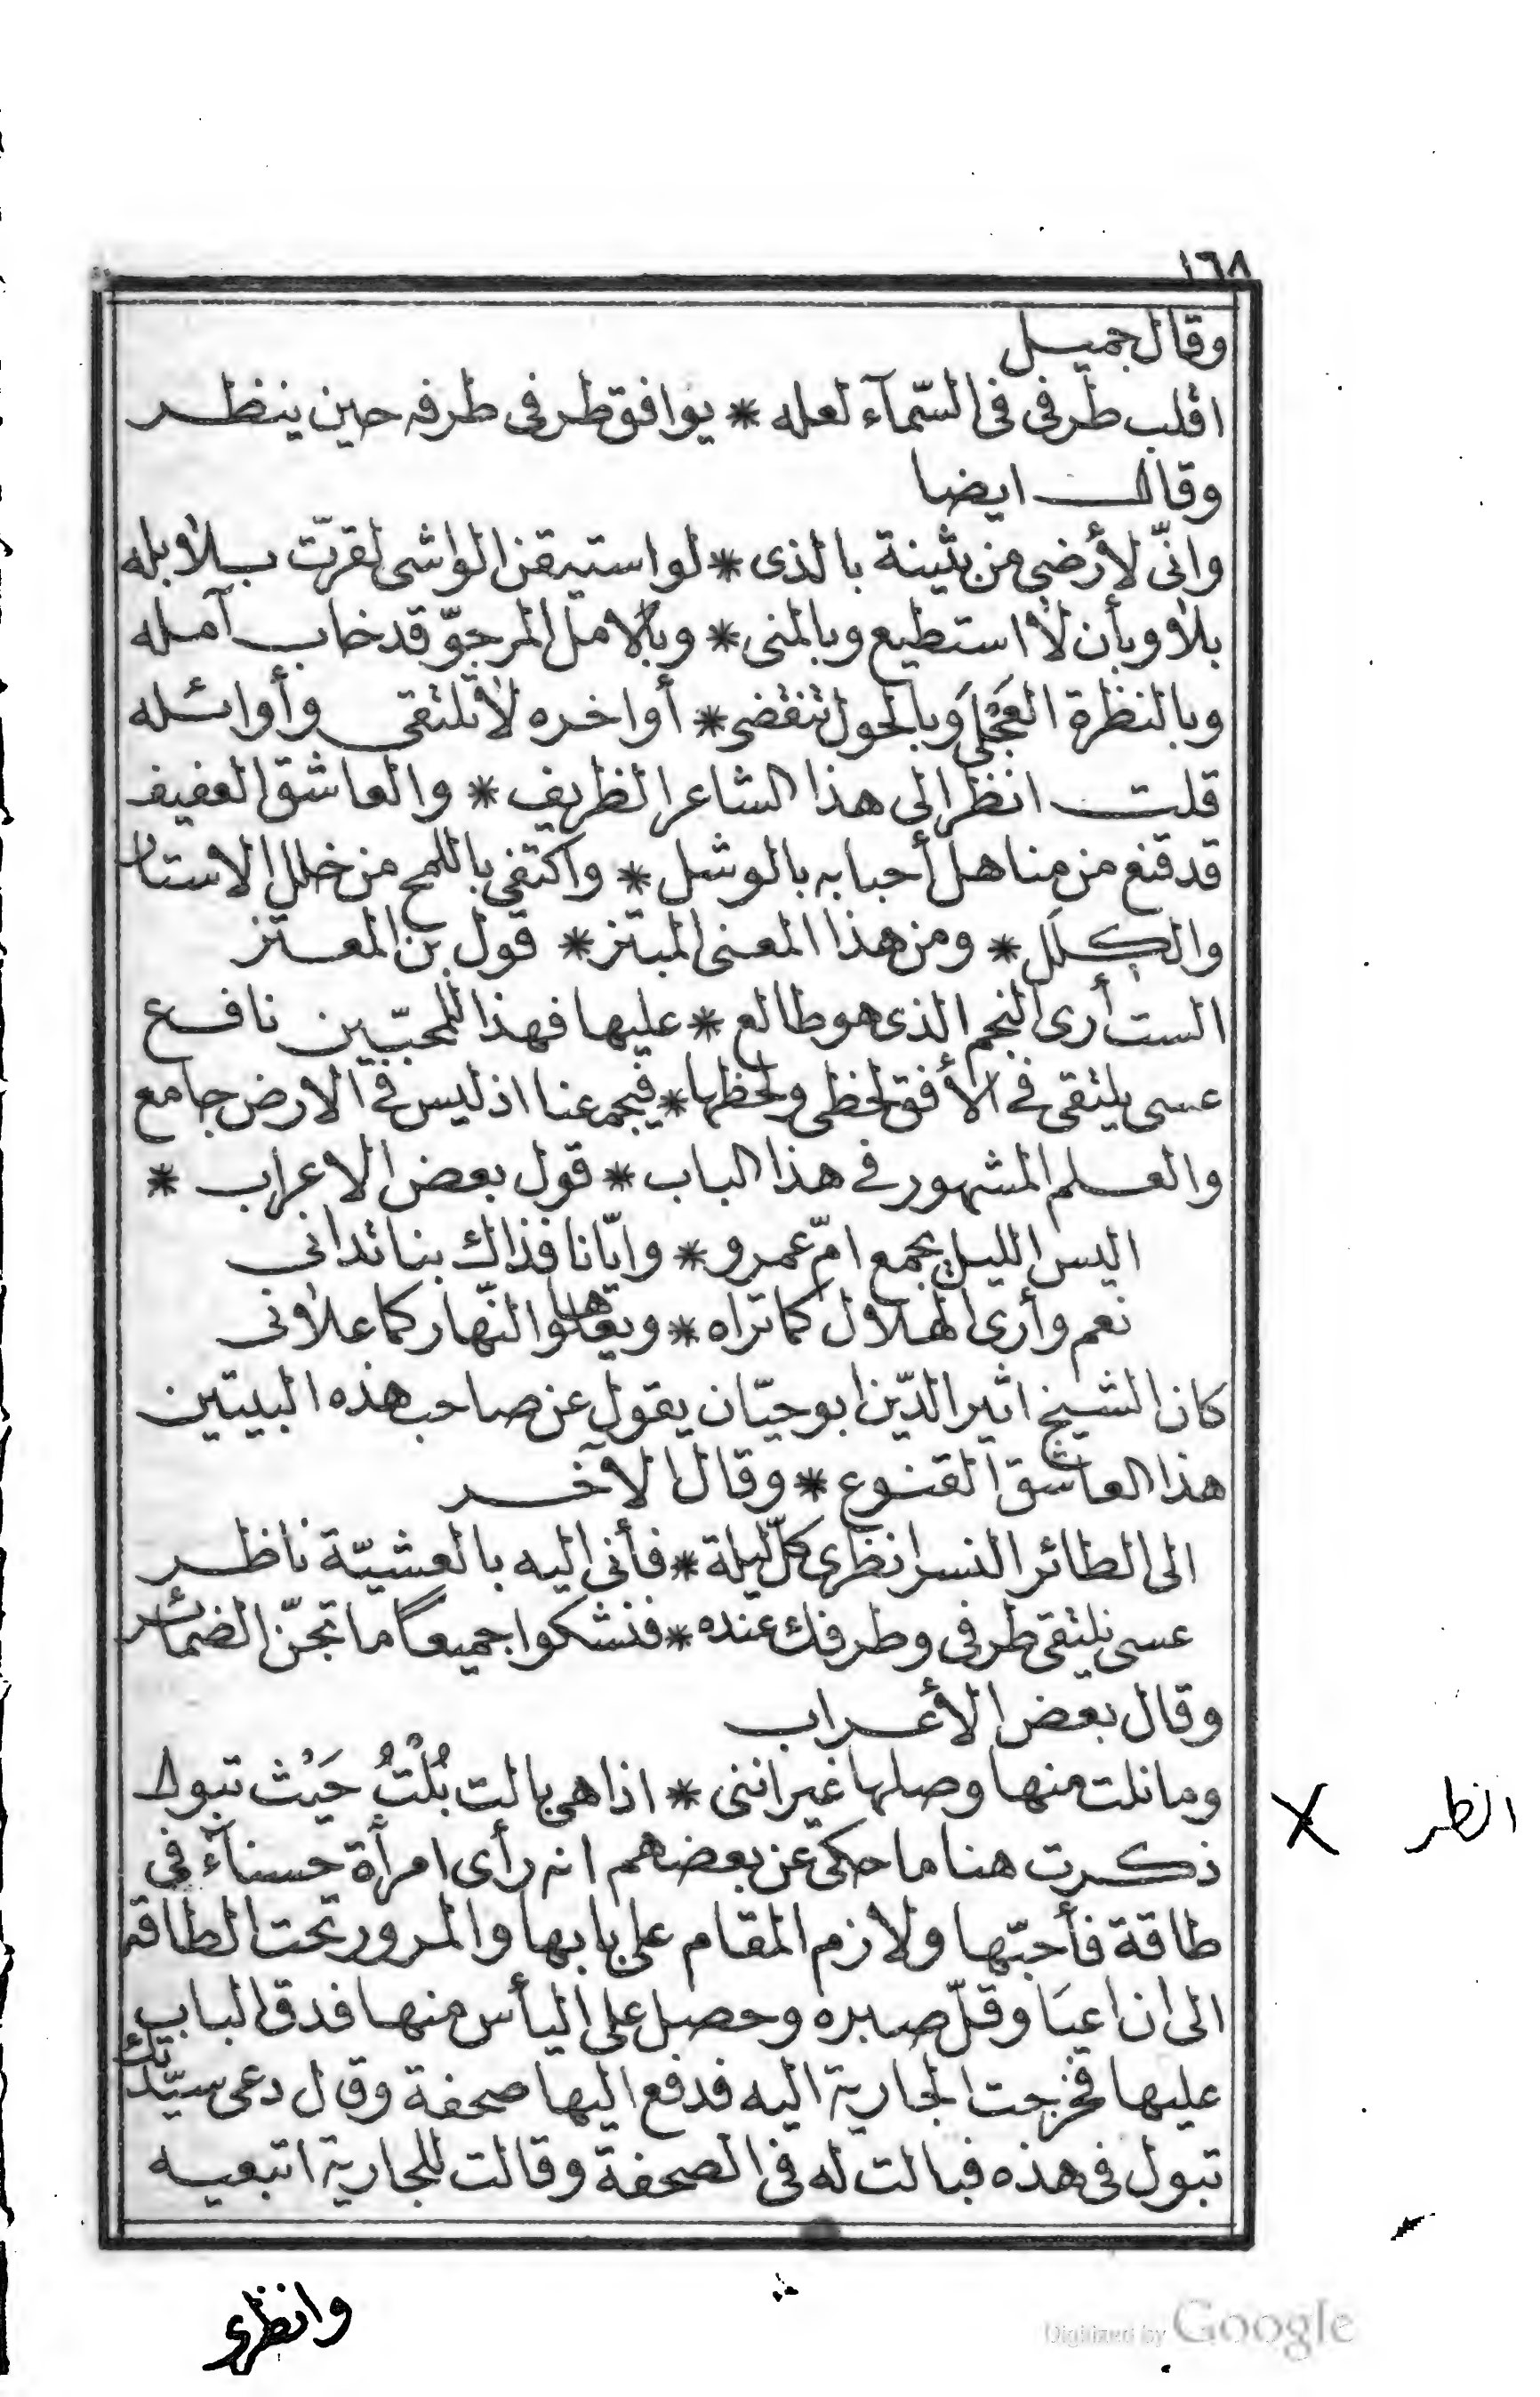 ١٦٨
وقال جميل
اقلب طرفى فى السّمآء لعله * يوافق طرفى طرفه حين ينظر
وقال ايضا
وانّى لأرضى من بثينة بالذى * لو استيقن الواشى لقرّت بلابله
بلا وبأن لا استطيع وبالمنى * وبالامل المرجوّ قد خاب آمله
وبالنظرة العَجْلَى وبالحول تنقضى * أواخره لا نلتقى وأوائله
قلت انظر الى هذا الشاعر الظريف * والعاشق العفيف
قد قنع من مناهل أحبابه بالوشل * واكتفى باللمح من خلل الاستار
والكلل * ومن هذا المعنى المبتز * قول بن المعتز
الست أرى النجم الذى هو طالع * عليها فهذا للمحبّين نافع
عسى يلتقى فى الأفق لحظى ولحظها * فيجمعنا اذ ليس فى الارض جامع
والعلم المشهور فى هذا الباب * قول بعض الاعراب *
اليس الليل يجمع امّ عمرو * وايّانا فذاك بنا تدانى
نعم وأرى الهلال كما تراه * ويعلوها النّهار كما علانى
كان الشيخ اثير الدّين ابو حيّان يقول عن صاحب هذه البيتين
هذا العاشق القنوع * وقال الآخر
الى الطائر النسر انظرى كلّ ليلة * فأنى اليه بالعشيّة ناظر
عسى يلتقى طرفى وطرفك عنده * فنشكوا جميعًا ما تجنّ الضمائر
وقال بعض الأعراب
وما نلت منها وصلها غير اننى * اذا هى بالت بُلْتُ حَيْث تبول
ذكرت هنا ما حكى عن بعضهم انه رأى امرأة حسنآء فى
طاقة فأحبّها ولازم المقام على بابها والمرور تحت الطاقة
الى ان اعيَا وقلّ صبره وحصل على اليأس منها فدق الباب
عليها فخرجت الجارية اليه فدفع اليها صحفة وقال دعى سيّدتك
تبول فى هذه فبالت له فى الصحفة وقالت للجارية اتبعيه
انظر
وانظرى
Digitized by Google